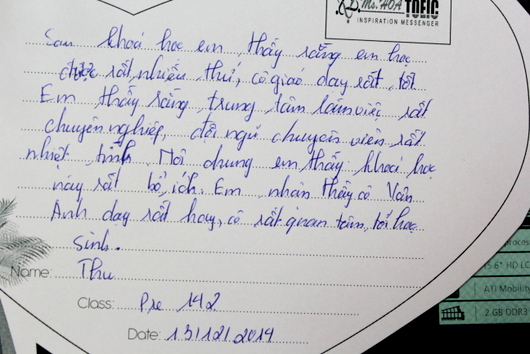 Ms. HOA TOEIC
INSPIRATION MESSENGER
Sau khoá học em thấy rằng em học
được rất nhiều thứ, cô giáo dạy rất tốt
Em thấy rằng trung tâm làm việc rất
chuyên nghiệp, đội ngũ chuyên viên rất
nhiệt tình. Nói chung em thấy khoá học
này rất bổ ích. Em nhận thấy cô Vân
Anh dạy rất hay, cô rất quan tâm tới học
sinh.
Name: Thu
Class: Pre 142
Date: 13/12/2014
15.6" HD LC
ATI Mobility
2 GB DDR3